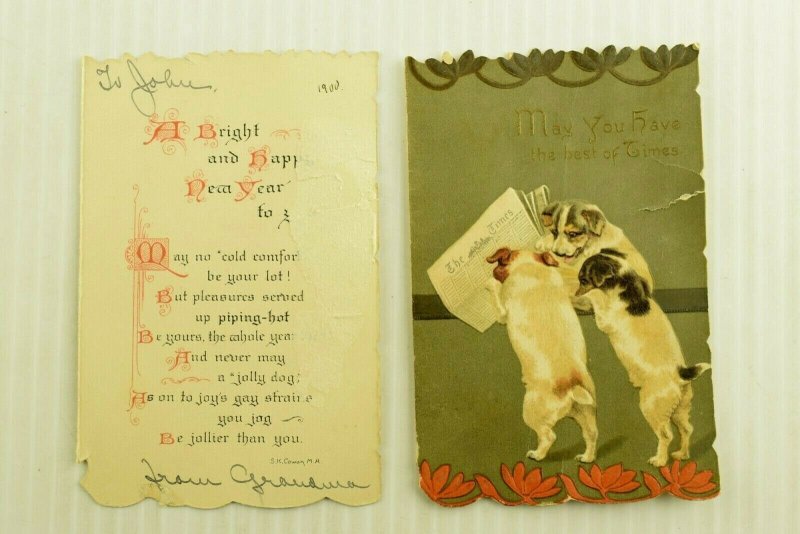 To John,
1900.
A Bright
and Happ
New Year
to
May no "cold comfor
be your lot!
But pleasures served
up piping-hot
Be yours, the whole yea
And never may
a "jolly dog,
As on to joy's gay strains
you jog
Be jollier than you.
S.K. Cowan, M.A.
from Grandma
May You Have
the best of Times
The Times